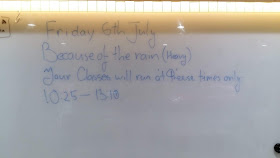 Friday 6th July
Because of the rain (Heavy)
Your Classes will run at these times only
10.25 – 13:10